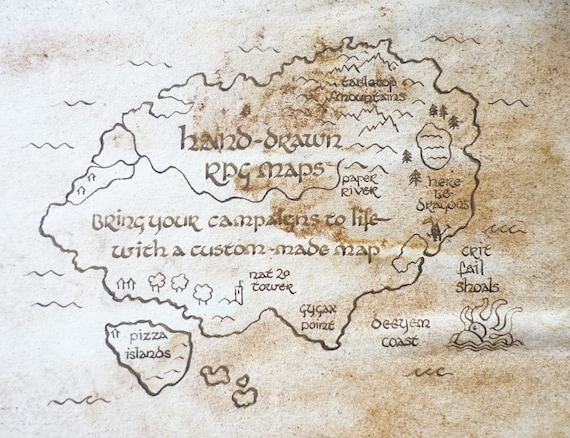 tabletop
mountains
hand-drawn
RPG maps
paper
river
here
be
dragons
Bring your campaigns to life
with a custom-made map
crit
fail
shoals
nat 20
tower
gygax
point
deeyem
coast
pizza
islands